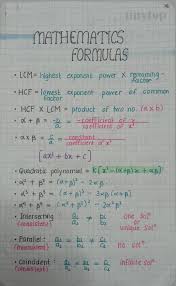 MATHEMATICS
FORMULAS
• LCM = highest exponent power × remaining factor
• HCF = lowest exponent power of common factor
• HCF × LCM = product of two no. (a×b)
• α + β = -b/a = -coefficient of x / coefficient of x²
• α × β = c/a = constant / coefficient of x²
[ax² + bx + c]
• Quadratic polynomial = k[x² - (α+β)x + αβ]
• α² + β² = (α+β)² - 2αβ
• α³ + β³ = (α+β)³ - 3αβ (α+β)
• Intersecting (consistent) a₁/a₂ ≠ b₁/b₂ one solⁿ or unique solⁿ
• Parallel: (inconsistent) a₁/a₂ = b₁/b₂ ≠ c₁/c₂ no solⁿ
• Coincident: (consistent) a₁/a₂ = b₁/b₂ = c₁/c₂ infinite solⁿ